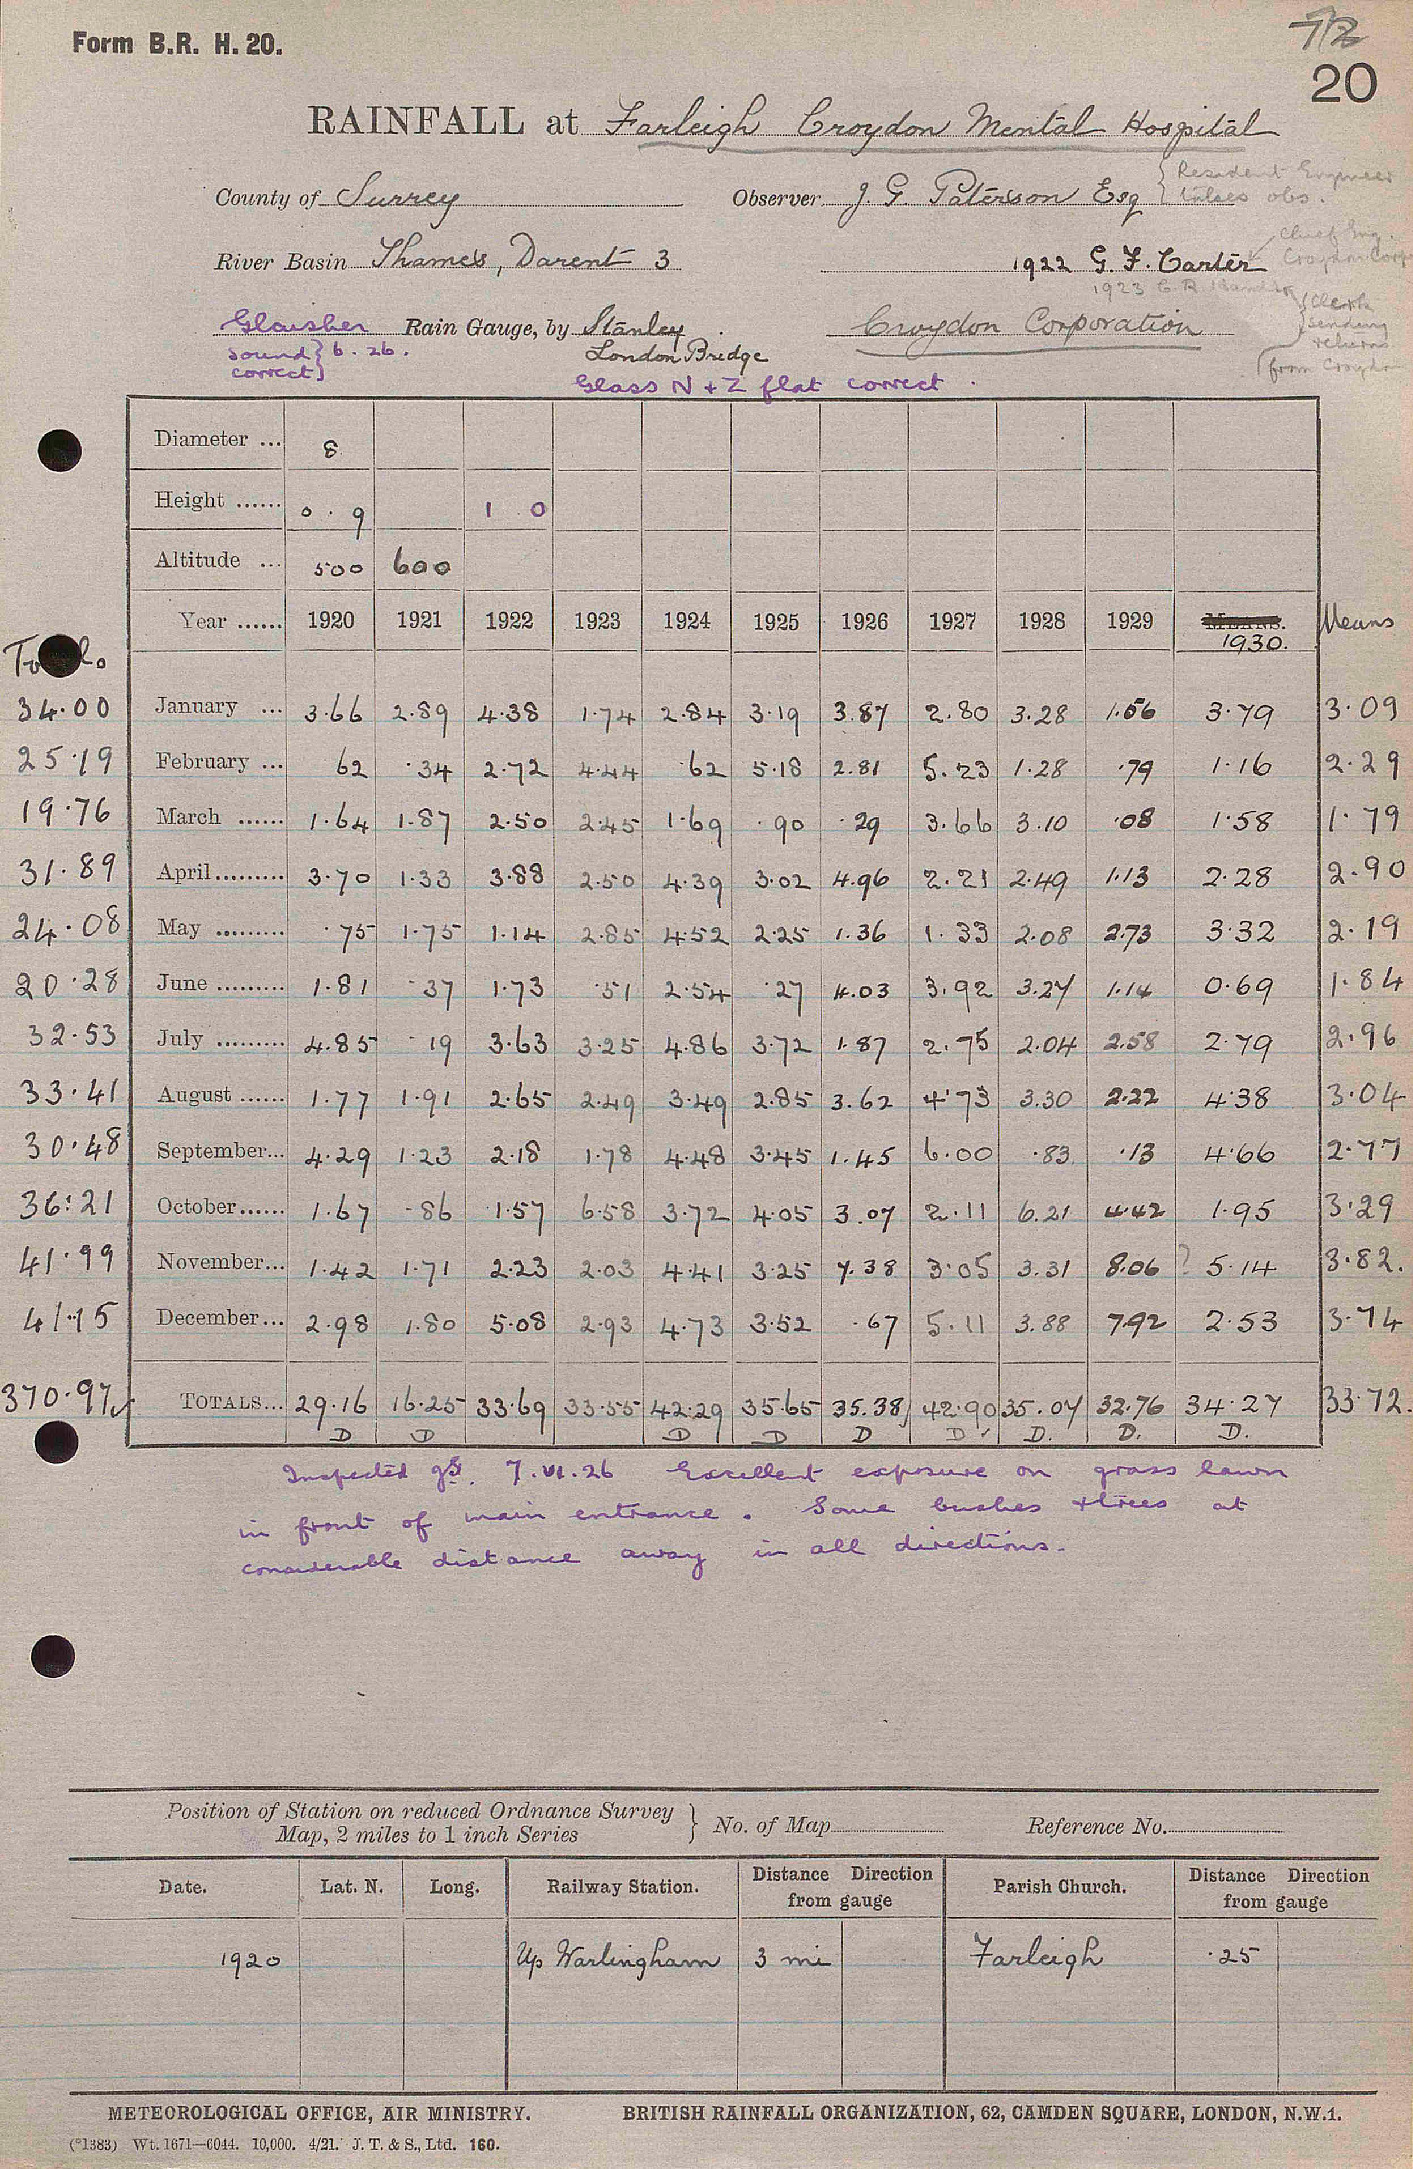 Form B.R. H. 20.
72
20
RAINFALL at Farleigh Croydon Mental Hospital
County of Surrey Observer J. G. Paterson Esq { Resident Engineer takes obs.
River Basin Thames, Darent 3 1922 G. F. Carter Chief Eng. Croydon Corp
1923 C. R.
Glaisher Rain Gauge, by Stanley London Bridge Croydon Corporation
Clerk sending returns from Croydon
sound } 6. 26.
correct }
Glass N + Z flat correct.
Diameter ... 8
Height ...... 0 . 9 1 0
Altitude ... 500 600
Year ...... 1920 1921 1922 1923 1924 1925 1926 1927 1928 1929 MEANS. 1930. Means
34.00 January ... 3.66 2.89 4.38 1.74 2.84 3.19 3.87 2.80 3.28 1.56 3.79 3.09
25.19 February ... 62 .34 2.72 4.44 .62 5.18 2.81 5.23 1.28 .79 1.16 2.29
19.76 March ...... 1.64 1.87 2.50 2.45 1.69 .90 .29 3.66 3.10 .08 1.58 1.79
31.89 April......... 3.70 1.33 3.88 2.50 4.39 3.02 4.96 2.21 2.49 1.13 2.28 2.90
24.08 May ......... .75 1.75 1.14 2.85 4.52 2.25 1.36 1.33 2.08 2.73 3.32 2.19
20.28 June ......... 1.81 .37 1.73 .51 2.54 .27 4.03 3.92 3.27 1.14 0.69 1.84
32.53 July ......... 4.85 .19 3.63 3.25 4.86 3.72 1.87 2.75 2.04 2.58 2.79 2.96
33.41 August ...... 1.77 1.91 2.65 2.49 3.49 2.85 3.62 4.73 3.30 2.22 4.38 3.04
30.48 September... 4.29 1.23 2.18 1.78 4.48 3.45 1.45 6.00 .83 .13 4.66 2.77
36.21 October...... 1.67 .86 1.57 6.58 3.72 4.05 3.07 2.11 6.21 4.42 1.95 3.29
41.99 November... 1.42 1.71 2.23 2.03 4.41 3.25 7.38 3.05 3.31 8.06 ? 5.14 3.82.
41.15 December... 2.98 1.80 5.08 2.93 4.73 3.52 .67 5.11 3.88 7.92 2.53 3.74
370.97 TOTALS... 29.16 16.25 33.69 33.55 42.29 35.65 35.38 42.90 35.07 32.76 34.27 33.72.
D D D D D D D. D. D.
Inspected 7.VI.26 Excellent exposure on grass lawn
in front of main entrance. Some bushes + trees at
considerable distance away in all directions.
Position of Station on reduced Ordnance Survey Map, 2 miles to 1 inch Series } No. of Map Reference No.
Date. Lat. N. Long. Railway Station. Distance Direction from gauge Parish Church. Distance Direction from gauge
1920 Up Warlingham 3 mi Farleigh .25
METEOROLOGICAL OFFICE, AIR MINISTRY. BRITISH RAINFALL ORGANIZATION, 62, CAMDEN SQUARE, LONDON, N.W.1.
(*1383) Wt. 1671—6044. 10,000. 4/21. J. T. & S., Ltd. 160.